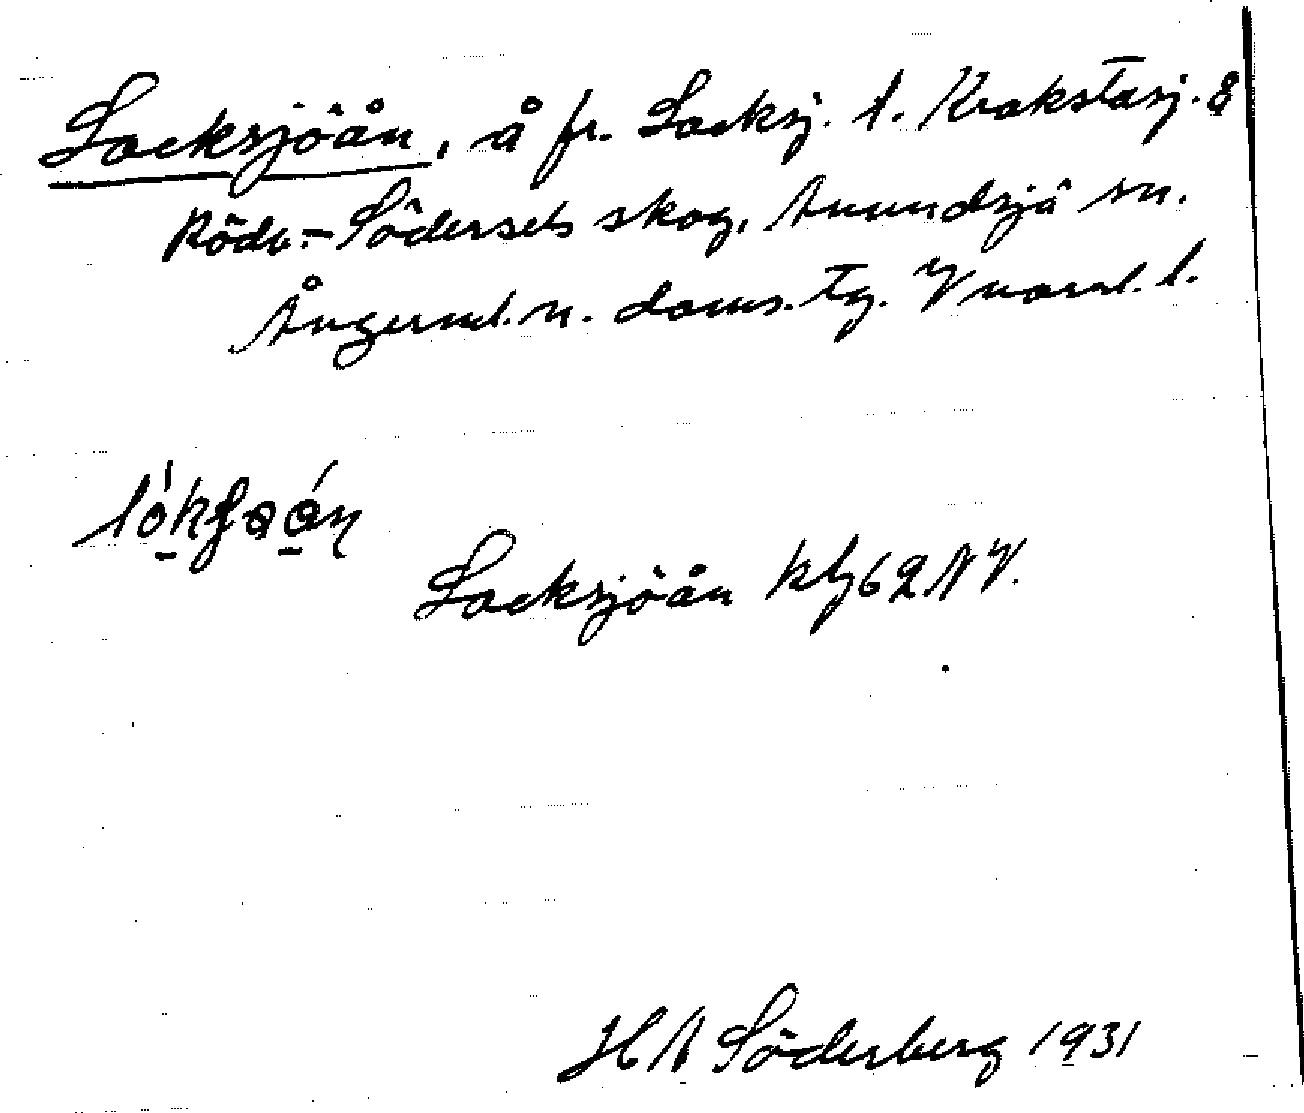 Locksjöån, å fr. Locksj. t. Krokstasj. &
Rödv.- Södersels skog, Anundsjö sn.
Ångerml. n. doms. tg. Vnorrl. l.
Locksjöån kbl 62 NV.
H A Söderberg 1931